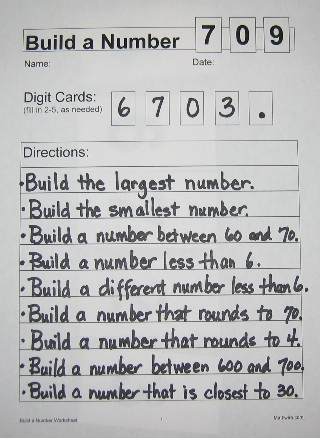 Build a Number 7 0 9
Name: Date:
Digit Cards: 6 7 0 3 .
(fill in 2-5, as needed)
Directions:
• Build the largest number.
• Build the smallest number.
• Build a number between 60 and 70.
• Build a number less than 6.
• Build a different number less than 6.
• Build a number that rounds to 70.
• Build a number that rounds to 4.
• Build a number between 600 and 700.
• Build a number that is closest to 30.
Build a Number Worksheet 1 Mathwire.com